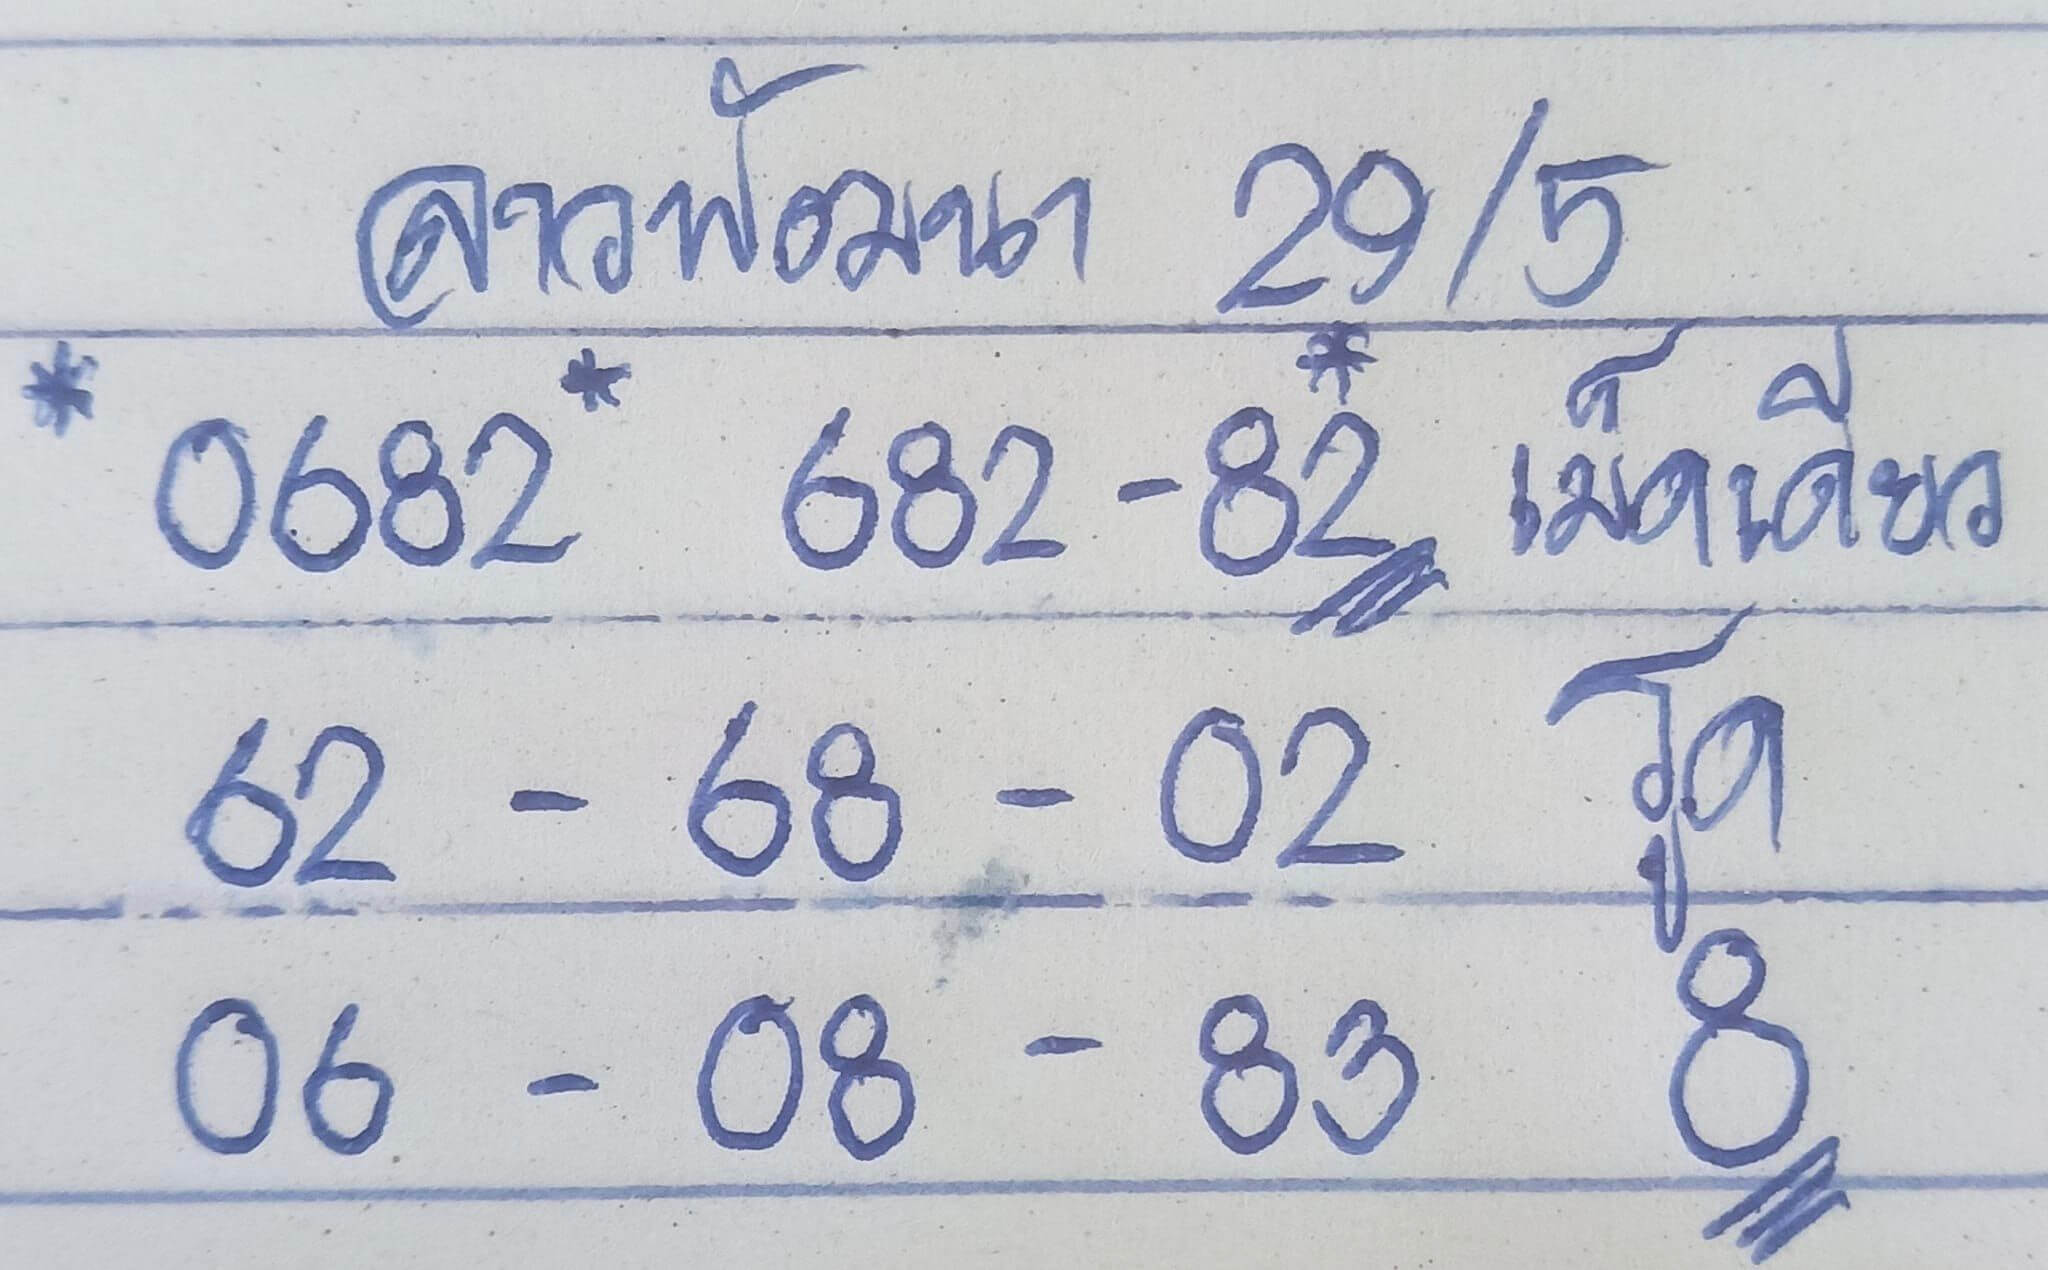 ลาวพัฒนา 29/5
* 0682 * 682 - 82 * เม็ดเดียว
62 - 68 - 02 รูด
06 - 08 - 83 8